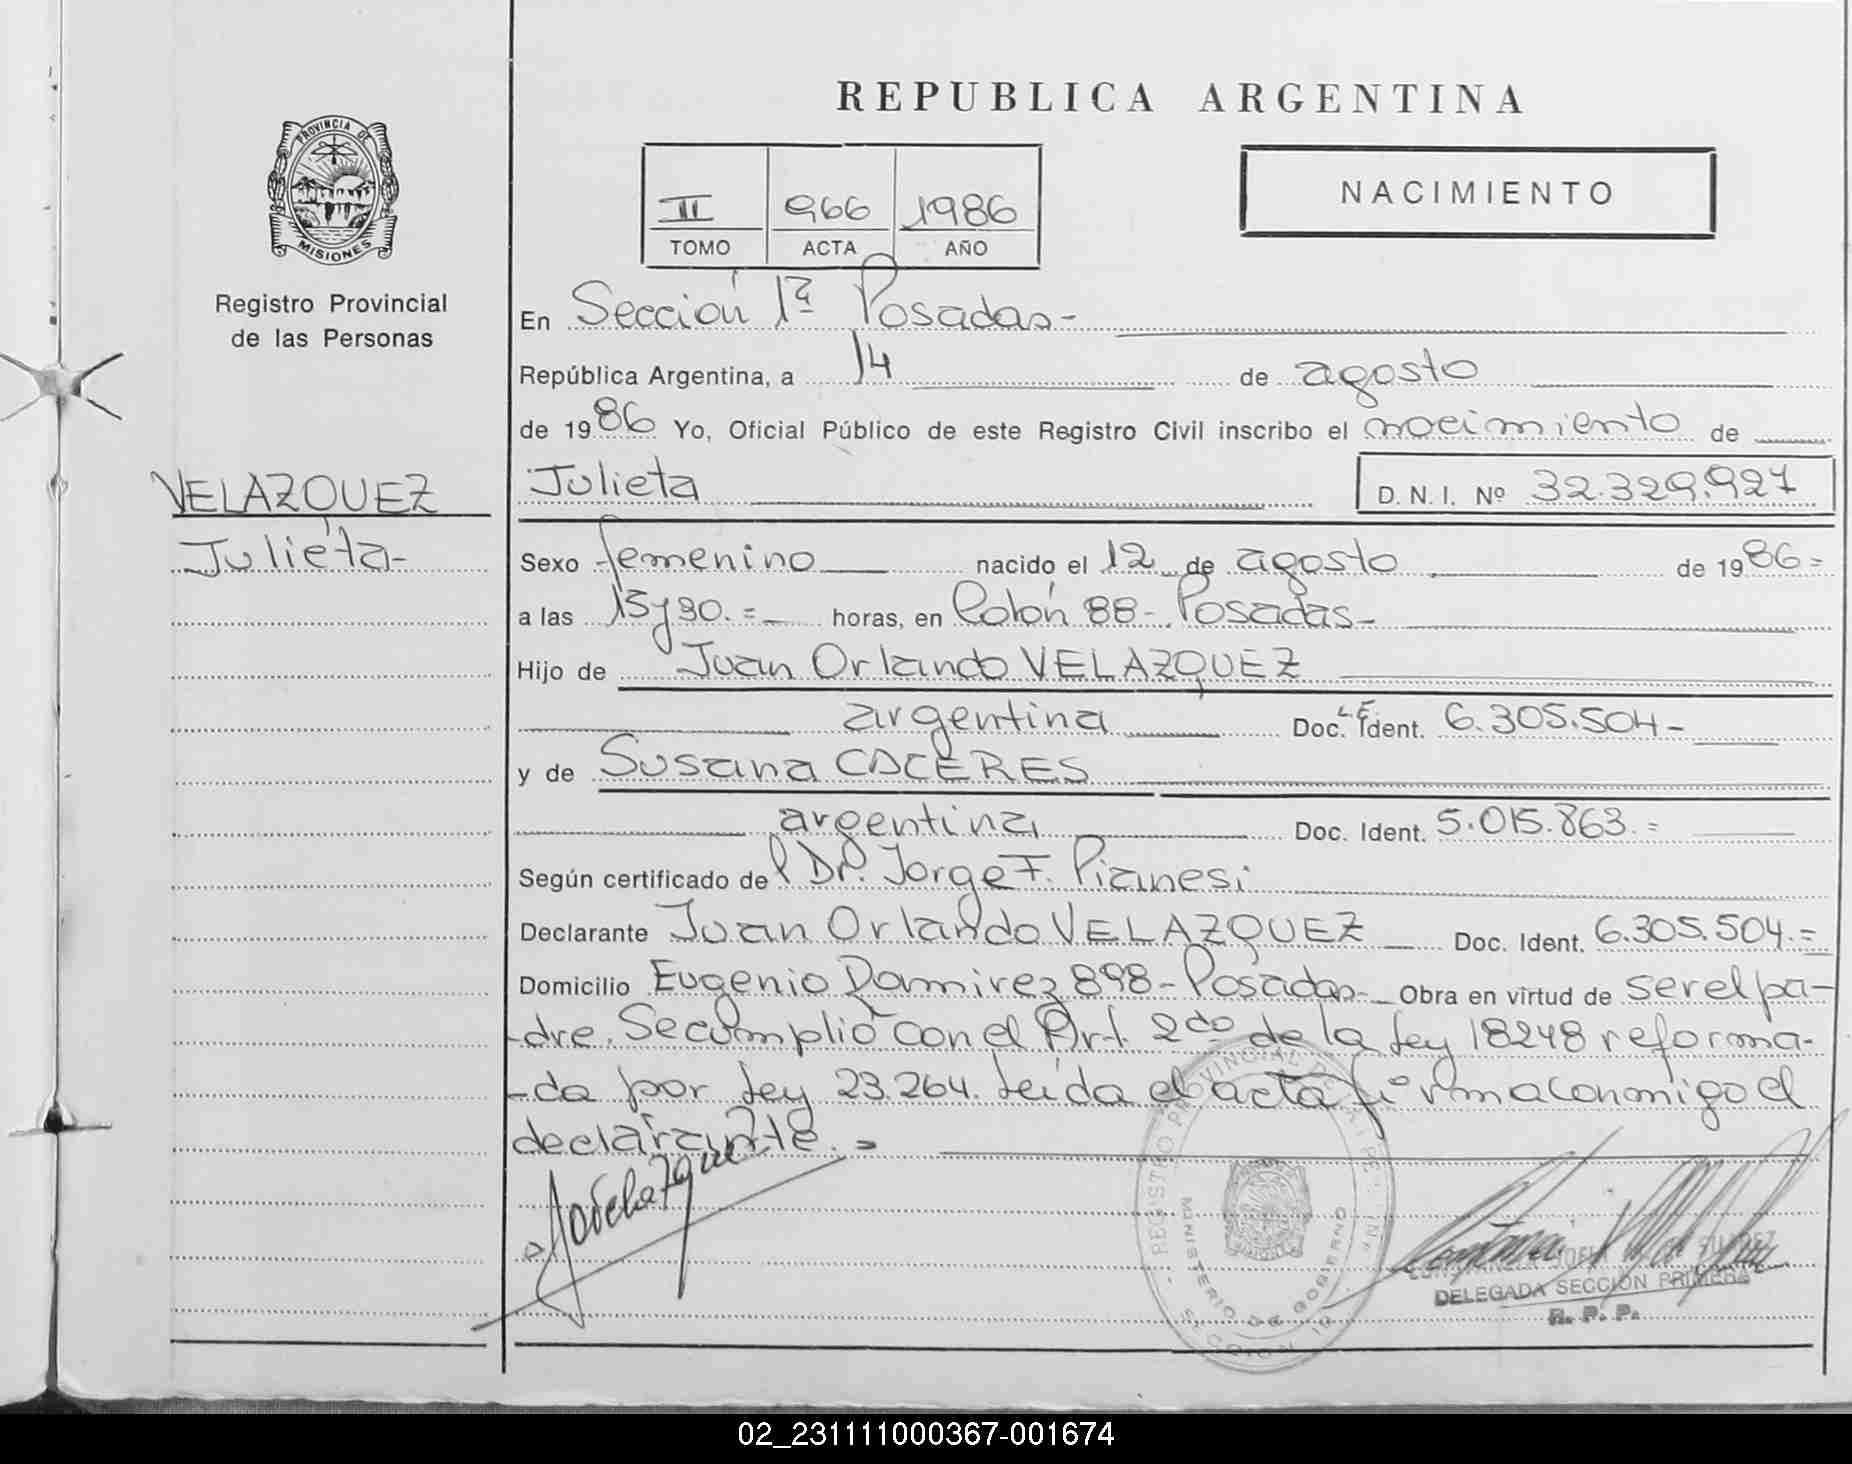 REPUBLICA ARGENTINA
PROVINCIA DE
MISIONES
Registro Provincial
de las Personas
II 966 1986
TOMO ACTA AÑO
NACIMIENTO
En Sección 1ª Posadas-
República Argentina, a 14 de agosto
de 1986 Yo, Oficial Público de este Registro Civil inscribo el nacimiento de
VELAZQUEZ
Julieta-
Julieta D.N.I. Nº 32.329.927
Sexo femenino nacido el 12 de agosto de 1986=
a las 13y30.= horas, en Colón 88-Posadas-
Hijo de Juan Orlando VELAZQUEZ
argentina Doc. Ident. L.E. 6.305.504-
y de Susana CACERES
argentina Doc. Ident. 5.015.863.=
Según certificado del Dr. Jorge F. Pianesi
Declarante Juan Orlando VELAZQUEZ Doc. Ident. 6.305.504.=
Domicilio Eugenio Ramirez 898-Posadas- Obra en virtud de ser el pa-
-dre. Se cumplió con el Art. 2do de la Ley 18248 reforma-
-da por Ley 23.264. Leída el acta firma conmigo el
declarante.=
REGISTRO PROVINCIAL DE
MINISTERIO DE GOBIERNO
DELEGADA SECCION PRIMERA
R. P. P.
02_231111000367-001674